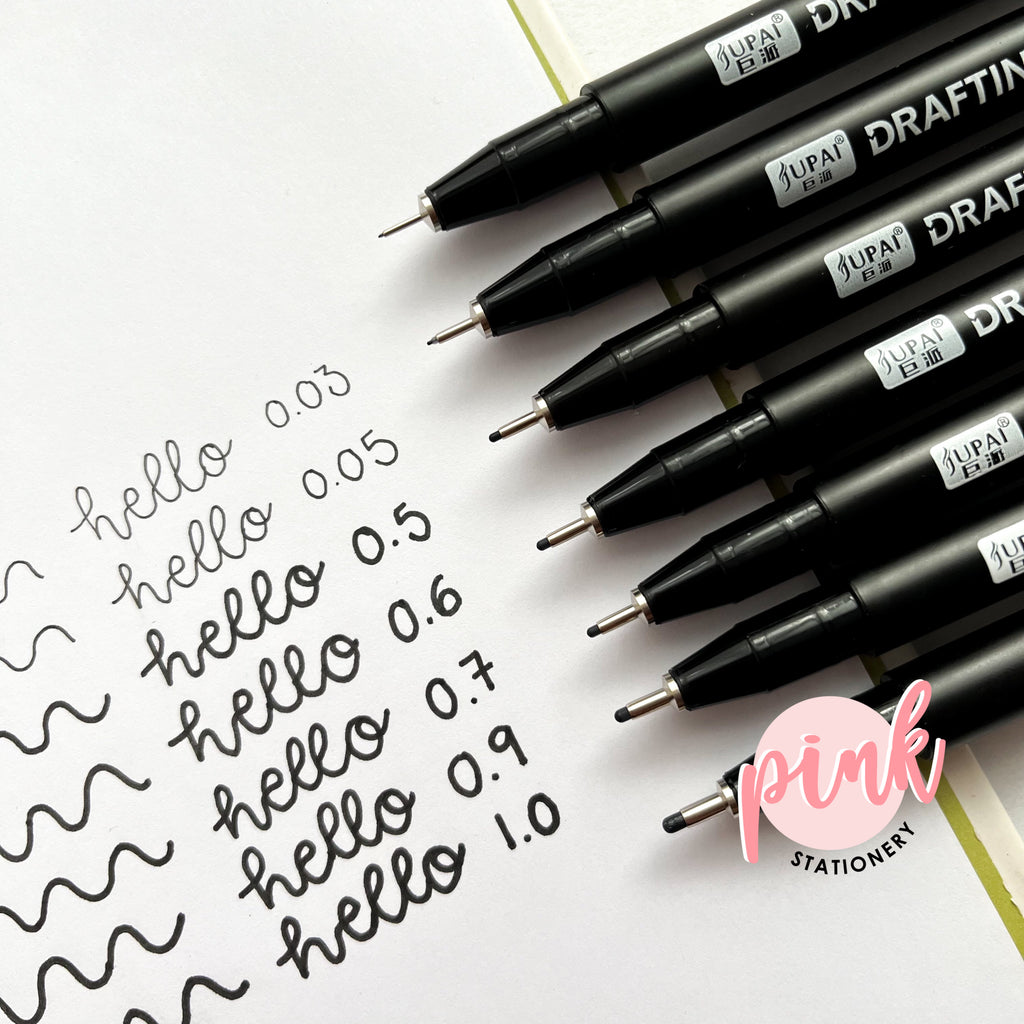 JUPAI®
巨派
DRA
JUPAI®
巨派
DRAFTIN
JUPAI®
巨派
DRAFT
JUPAI®
巨派
DRA
JUPAI®
巨派
JUPA
巨派
hello 0.03
hello 0.05
hello 0.5
hello 0.6
hello 0.7
hello 0.9
hello 1.0
pink
STATIONERY